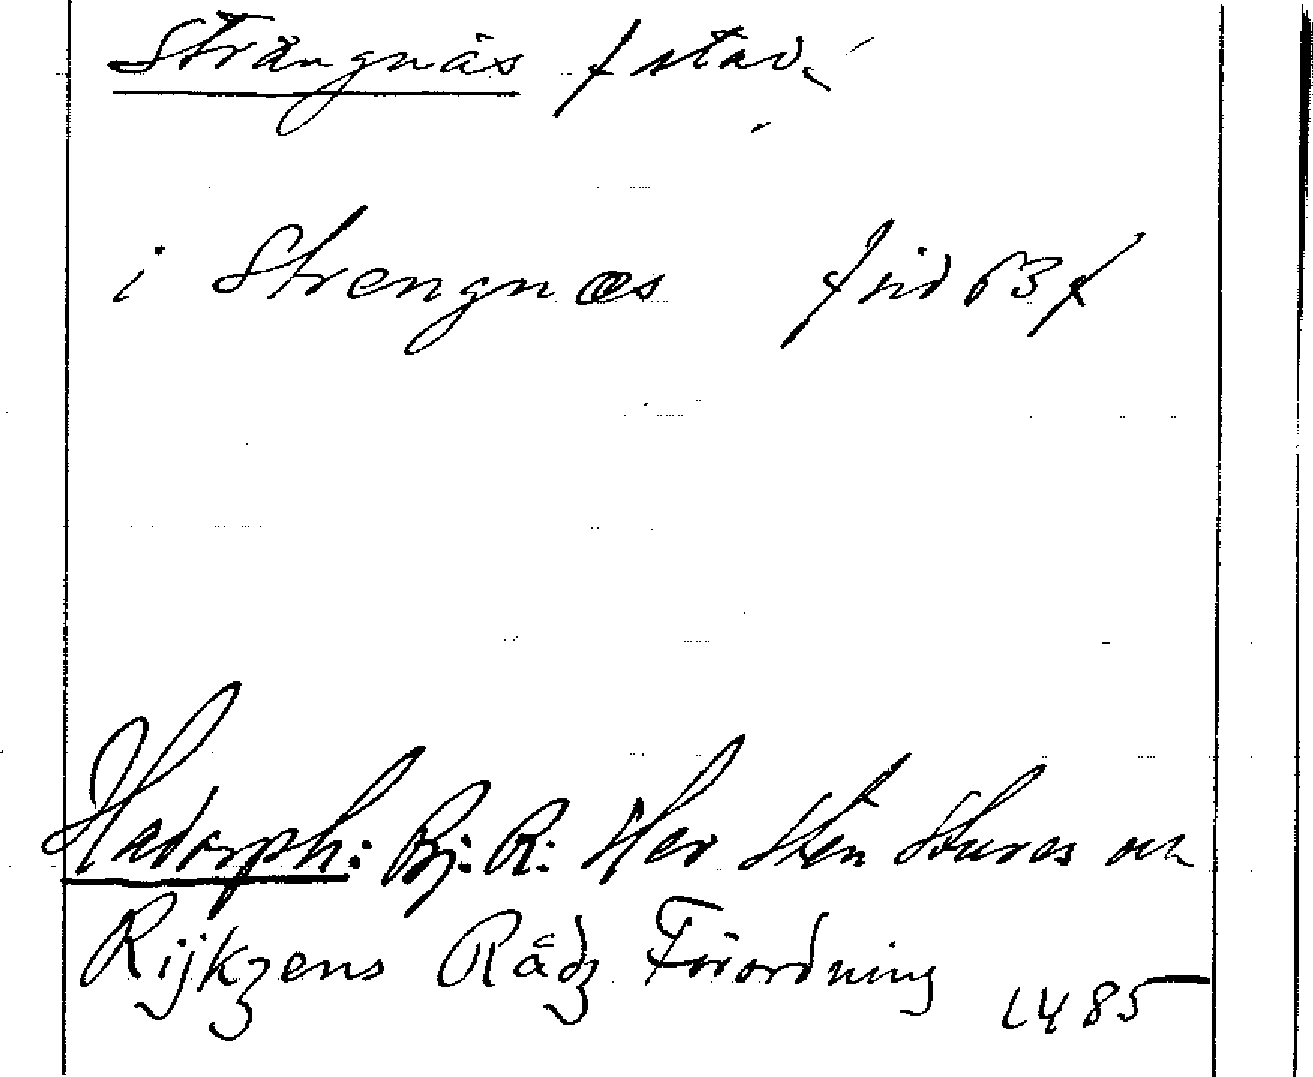 Strängnäs / stad
i Strengnæs / sid 63 /
Hadorph: Bj: R: Her Sten Stures och
Rijkzens Rådz Förordning 1485